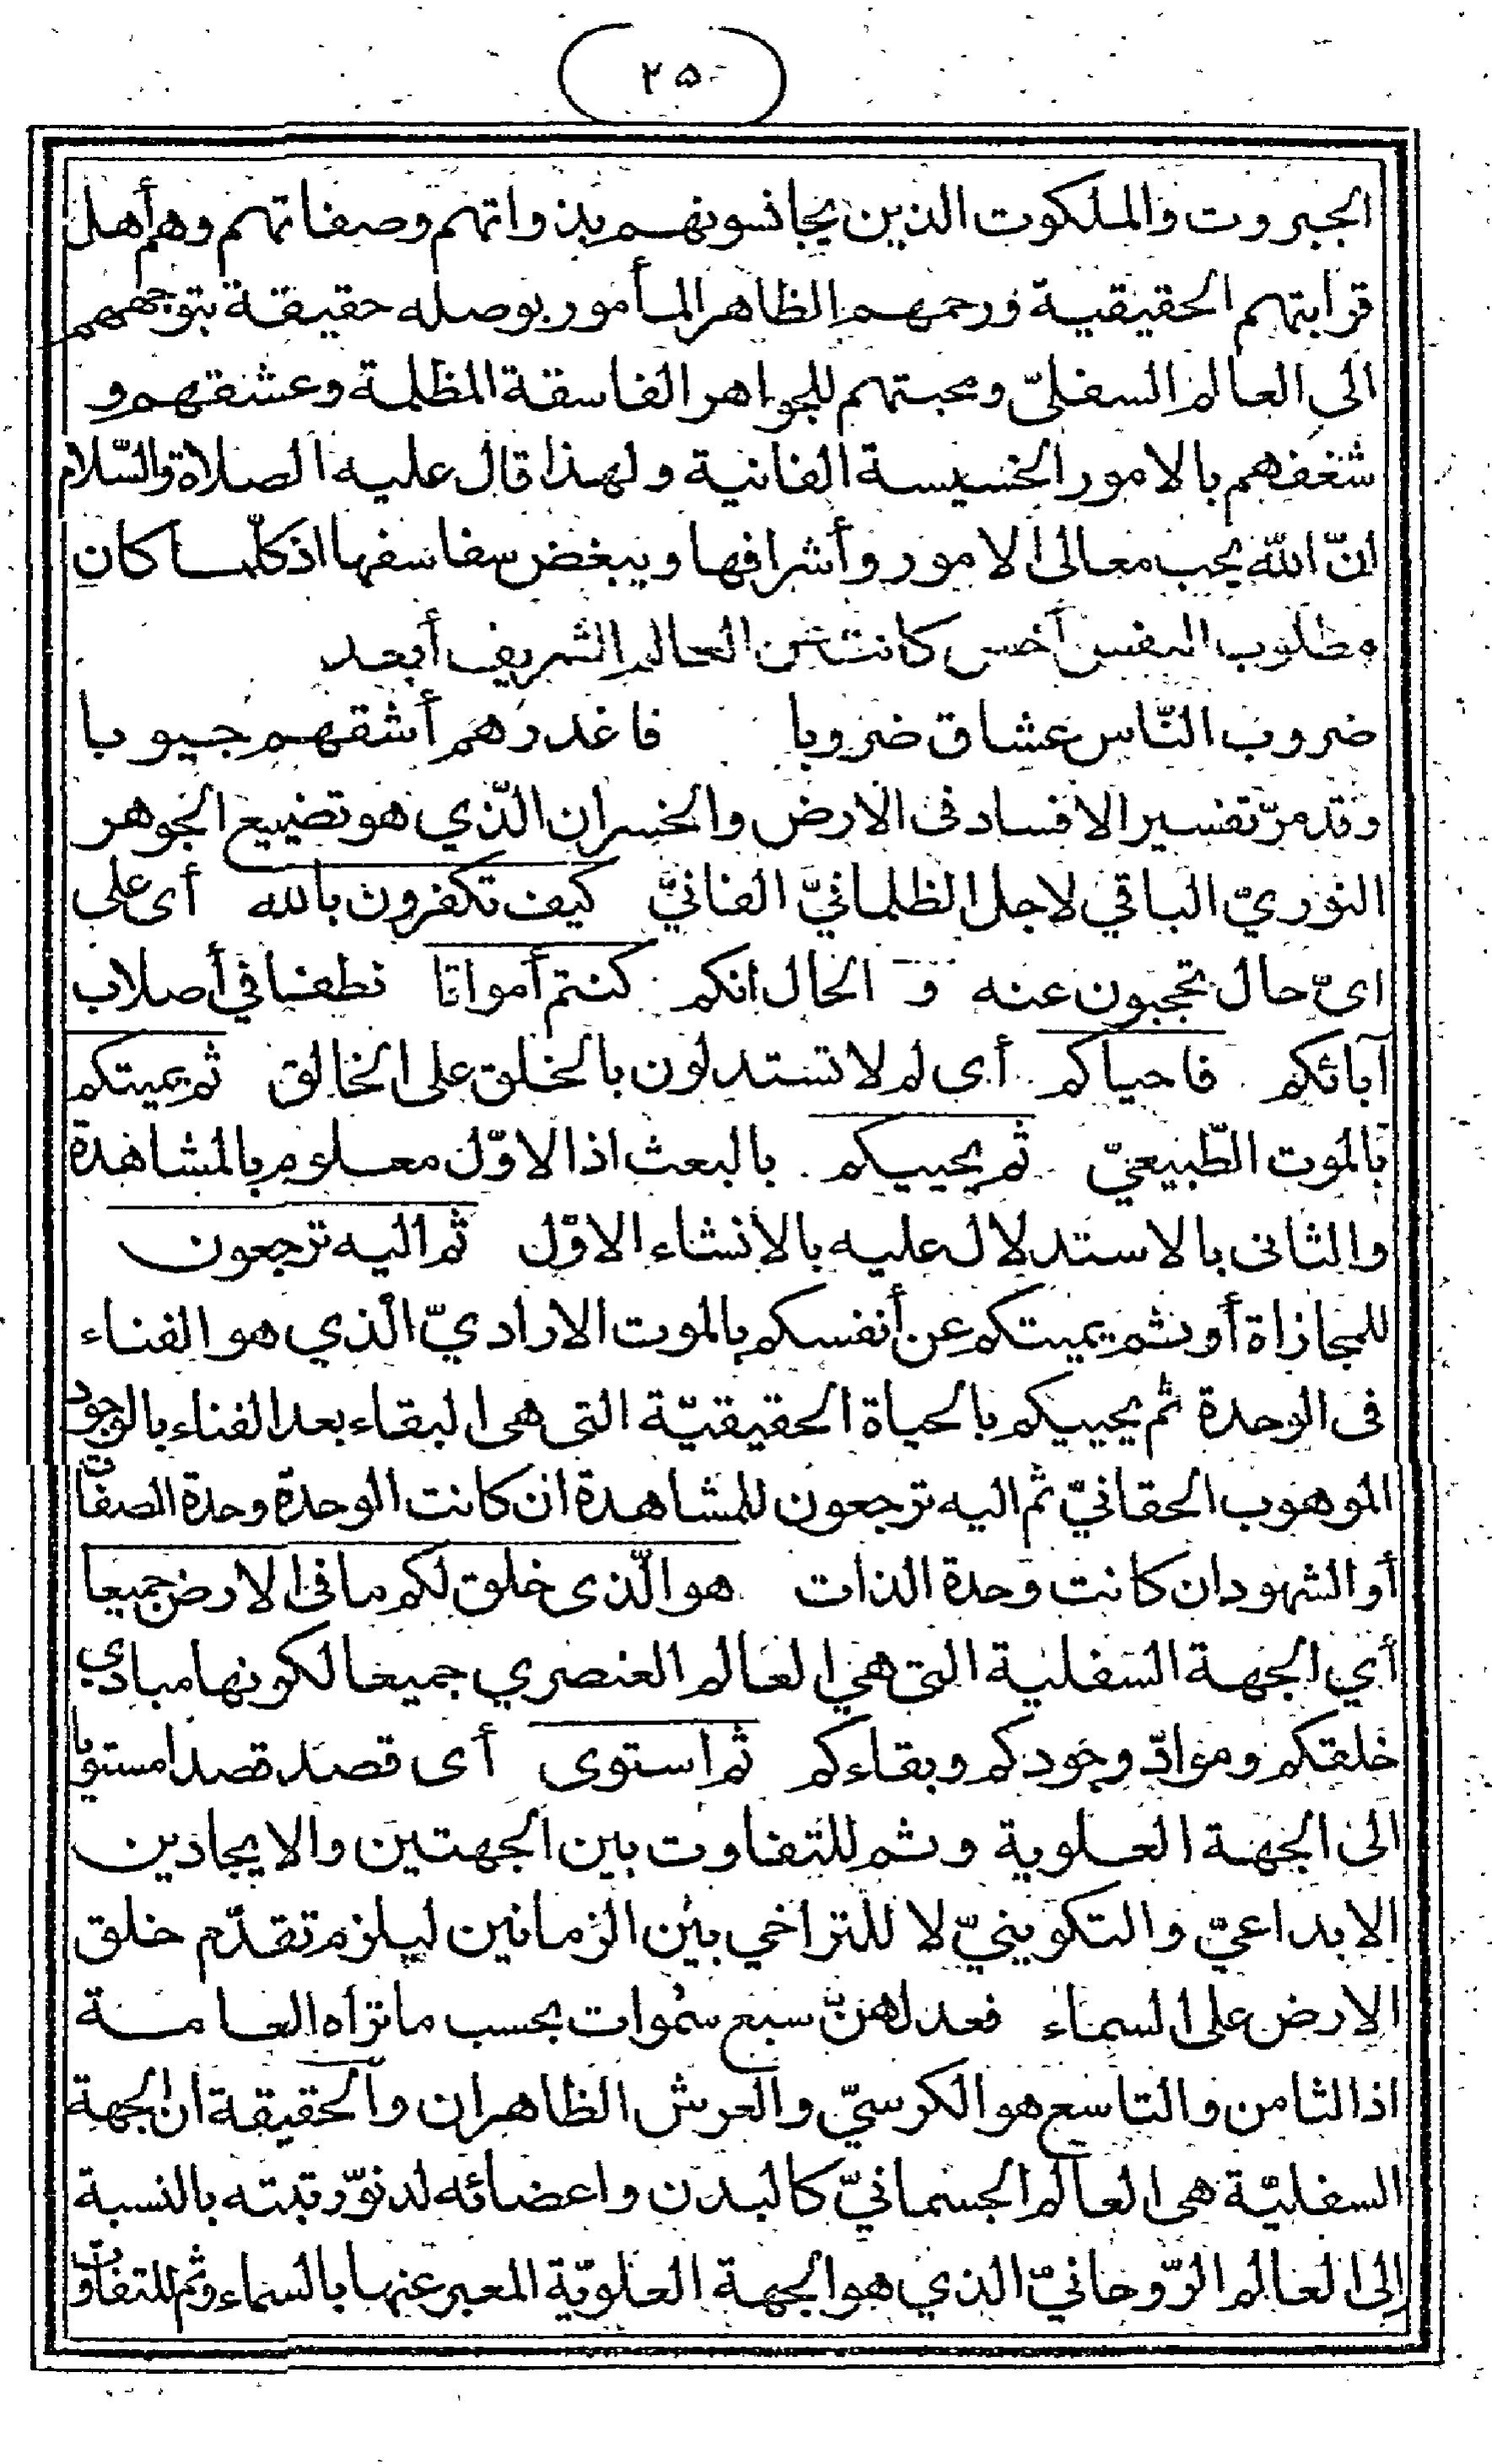 ٢٥
الجبروت والملكوت الذين يجانسونهم بذواتهم وصفاتهم وهم أهل
قرابتهم الحقيقية ورحمهم الظاهر المأمور بوصله حقيقة بتوجههم
الى العالم السفلىّ ومحبتهم للجواهر الفاسقة المظلمة وعشقهم و
شغفهم بالامور الخسيسة الفانية ولهذا قال عليه الصلاة والسّلام
انّ اللّٰه يحب معالى الامور وأشرافها ويبغض سفاسفها اذ كلّما كان
مطلوب النفس أخس كانت عن العالم الشريف أبعد
ضروب النّاس عشاق ضروبا فاعذرهم أشقهم جيوبا
وقد مرّ تفسير الافساد فى الارض والخسران الّذي هو تضييع الجوهر
النوريّ الباقي لاجل الظلمانيّ الفانيّ كيف تكفرون بالله أى على
اىّ حال تحجبون عنه و الحال انكم كنتم أمواتا نطفا في أصلاب
آبائكم فاحياكم أى لم لا تستدلون بالخلق على الخالق ثم يميتكم
بالموت الطّبيعيّ ثم يحييكم بالبعث اذ الاوّل معلوم بالمشاهدة
والثانى بالاستدلال عليه بالانشاء الاوّل ثم اليه ترجعون
للمجازاة أو ثم يميتكم عن أنفسكم بالموت الاراديّ الّذي هو الفناء
فى الوحدة ثم يحييكم بالحياة الحقيقيّة التى هى البقاء بعد الفناء بالوجود
الموهوب الحقانيّ ثم اليه ترجعون للمشاهدة ان كانت الوحدة وحدة الصفات
أو الشهود ان كانت وحدة الذات هو الّذى خلق لكم ما فى الارض جميعا
أي الجهة السفلية التى هي العالم العنصري جميعا لكونها مبادي
خلقكم وموادّ وجودكم وبقاءكم ثم استوى أى قصد قصدا مستويا
الى الجهة العلوية وثم للتفاوت بين الجهتين والايجادين
الابداعيّ والتكوينيّ لا للتراخي بين الزمانين ليلزم تقدّم خلق
الارض على السماء فعدلهنّ سبع سموات بحسب ما تراه العامة
اذ الثامن والتاسع هو الكرسيّ والعرش الظاهران والحقيقة ان الجهة
السفليّة هى العالم الجسمانيّ كالبدن واعضائه لدنوّ رتبته بالنسبة
إلى العالم الرّوحانيّ الذي هو الجهة العلويّة المعبر عنها بالسماء وثم للتفاوت